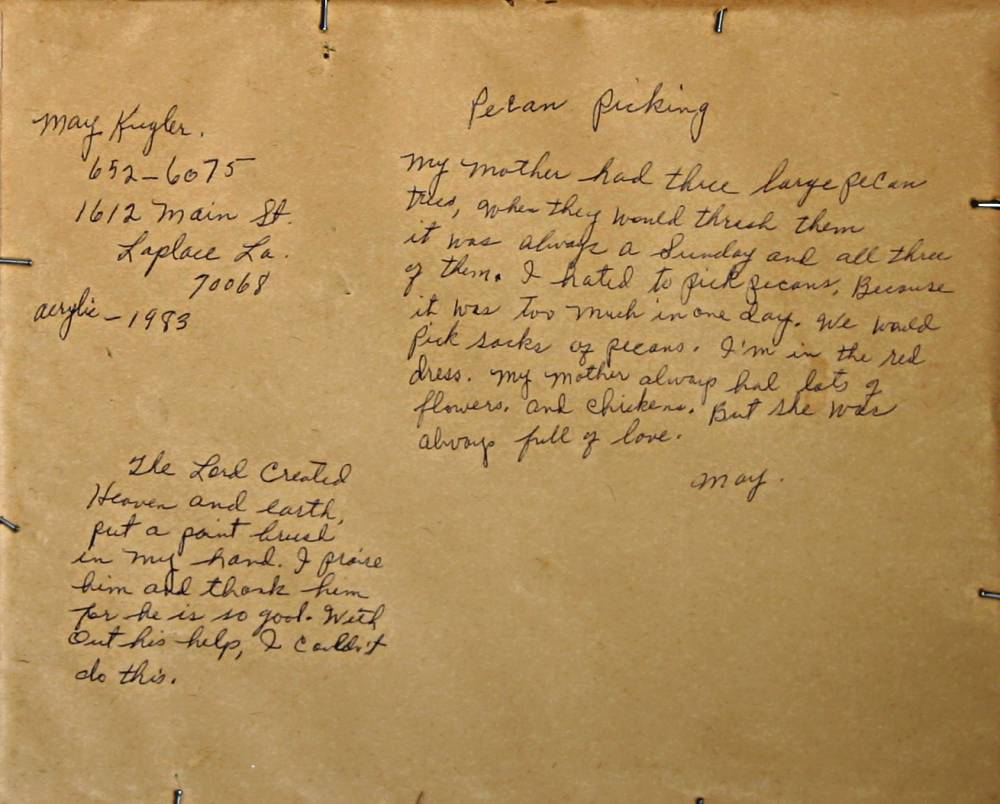 May Kugler.
652-6075
1612 Main St.
Laplace La.
70068
acrylic - 1983
The Lord Created
Heaven and earth,
put a paint brush
in my hand. I praise
him and thank him
for he is so good. With
Out his help, I couldn't
do this.
Pecan Picking
My Mother had three large pecan
trees, when they would thrash them
it was always a Sunday and all three
of them. I hated to pick pecans, Because
it was too much in one day. We would
Pick sacks of pecans. I'm in the red
dress. My Mother always had lots of
flowers. and chickens. But she was
always full of love.
May.